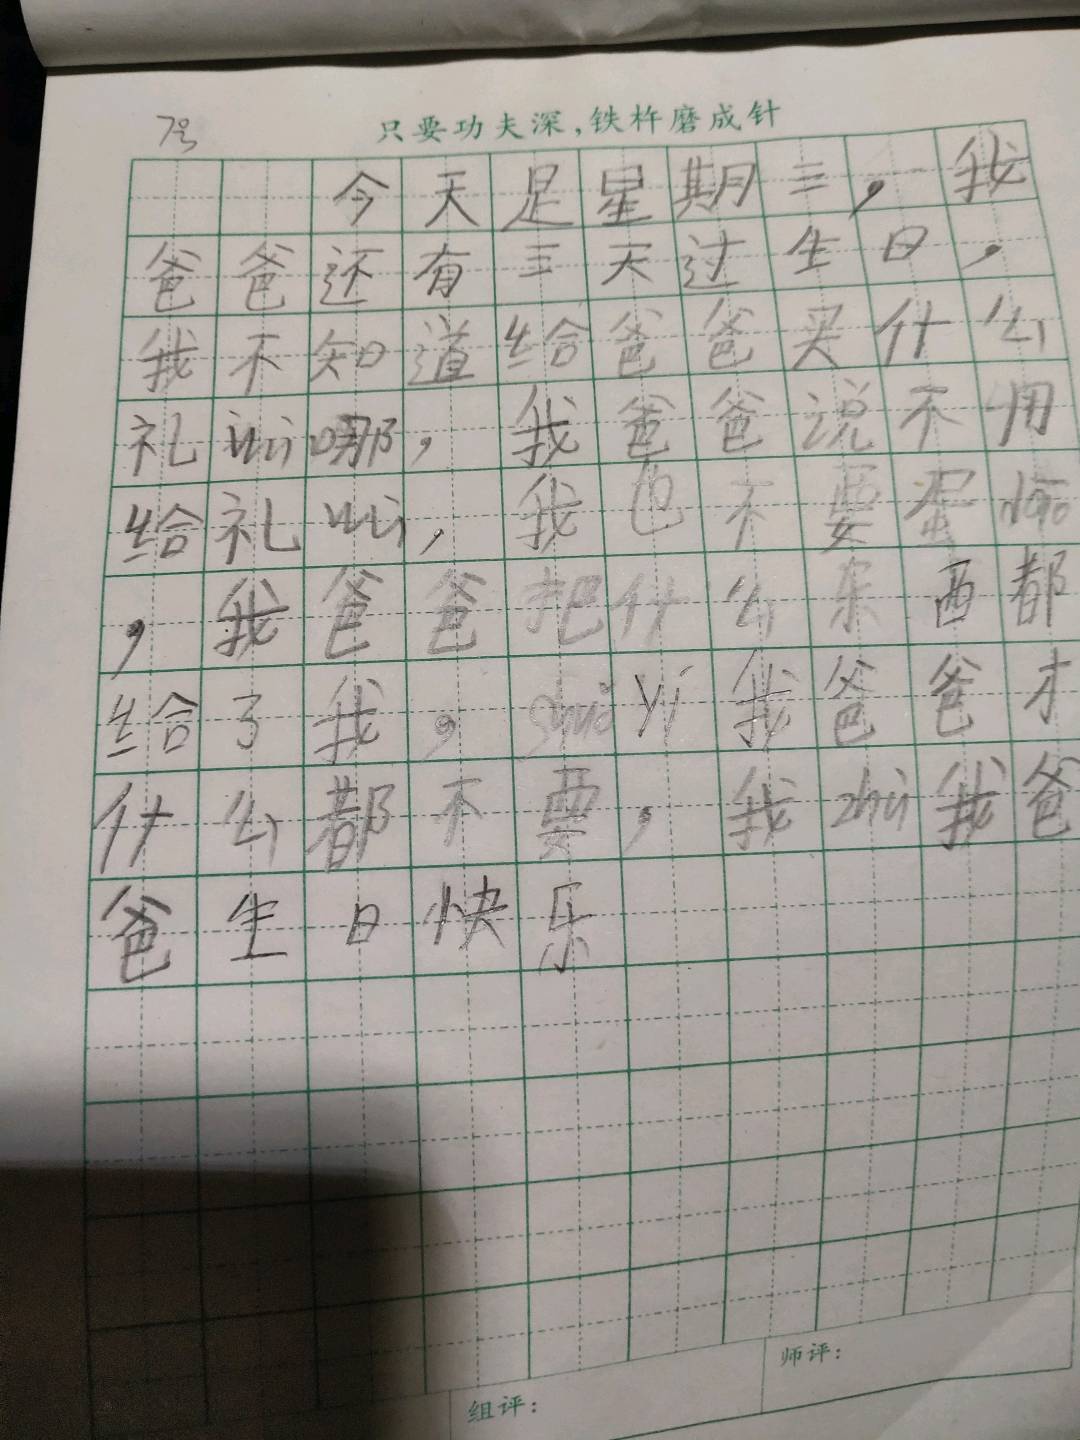 7号
只要功夫深,铁杵磨成针
今天是星期三,我
爸爸还有三天过生日,
我不知道给爸爸买什么
礼wu哪,我爸爸说不用
给礼wu,我也不要蛋gao
,我爸爸把什么东西都
给了我,shuǒ yǐ我爸爸才
什么都不要,我zhù我爸
爸生日快乐
组评:
师评: